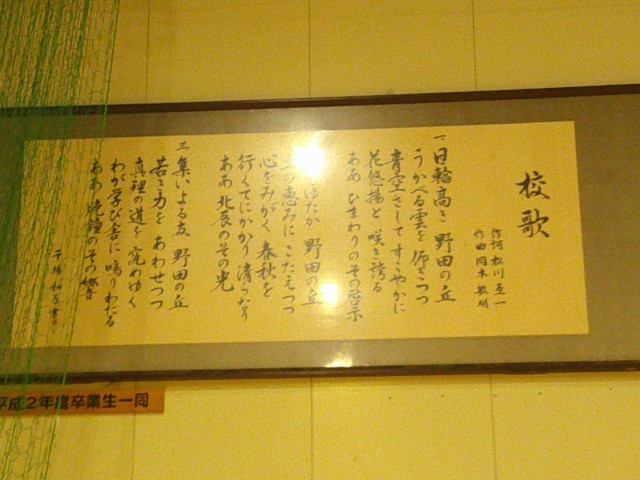 校歌
作詞 松川
作曲 岡本 敏明
一 日輪高き 野田の丘
うかべる雲を 仰ぎつつ
青空さして すこやかに
花悠揚と 咲き誇る
ああ ひまわりのその啓示
ゆたか 野田の丘
の恵みに こたえつつ
心をみがく 春秋を
行くてにかかり 清らなり
ああ 北辰のその光
三 集いよる友 野田の丘
若き力を あわせつつ
真理の道を 究めゆく
わが学び舎に 鳴りわたる
ああ 鐘のその響
平成2年度卒業生一同